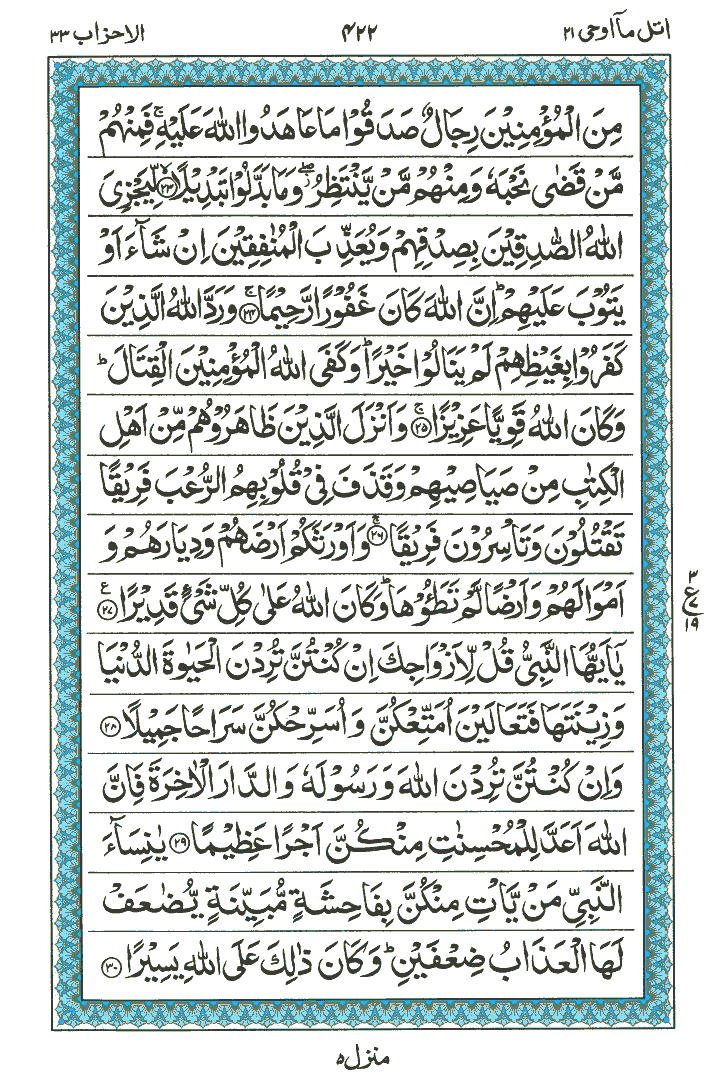 اتل مآ اوحی ۲۱ ۴۲۲ الاحزاب ۳۳
مِنَ الْمُؤْمِنِیْنَ رِجَالٌ صَدَقُوْا مَا عَاهَدُوا اللّٰهَ عَلَیْهِ ۚ فَمِنْهُمْ
مَّنْ قَضٰی نَحْبَهٗ وَمِنْهُمْ مَّنْ یَّنْتَظِرُ ۖ وَمَا بَدَّلُوْا تَبْدِیْلًا ۙ﴿۲۳﴾ لِّیَجْزِیَ
اللّٰهُ الصّٰدِقِیْنَ بِصِدْقِهِمْ وَیُعَذِّبَ الْمُنٰفِقِیْنَ اِنْ شَآءَ اَوْ
یَتُوْبَ عَلَیْهِمْ ؕ اِنَّ اللّٰهَ كَانَ غَفُوْرًا رَّحِیْمًا ۚ﴿۲۴﴾ وَرَدَّ اللّٰهُ الَّذِیْنَ
كَفَرُوْا بِغَیْظِهِمْ لَمْ یَنَالُوْا خَیْرًا ؕ وَكَفَی اللّٰهُ الْمُؤْمِنِیْنَ الْقِتَالَ ؕ
وَكَانَ اللّٰهُ قَوِیًّا عَزِیْزًا ۚ﴿۲۵﴾ وَاَنْزَلَ الَّذِیْنَ ظَاهَرُوْهُمْ مِّنْ اَهْلِ
الْكِتٰبِ مِنْ صَیَاصِیْهِمْ وَقَذَفَ فِیْ قُلُوْبِهِمُ الرُّعْبَ فَرِیْقًا
تَقْتُلُوْنَ وَتَاْسِرُوْنَ فَرِیْقًا ۚ﴿۲۶﴾ وَاَوْرَثَكُمْ اَرْضَهُمْ وَدِیَارَهُمْ وَ
اَمْوَالَهُمْ وَاَرْضًا لَّمْ تَطَـُٔوْهَا ؕ وَكَانَ اللّٰهُ عَلٰی كُلِّ شَیْءٍ قَدِیْرًا ﴿۲۷﴾ ع
۳
ع ۷
۱۹
یٰۤاَیُّهَا النَّبِیُّ قُلْ لِّاَزْوَاجِكَ اِنْ كُنْتُنَّ تُرِدْنَ الْحَیٰوةَ الدُّنْیَا
وَزِیْنَتَهَا فَتَعَالَیْنَ اُمَتِّعْكُنَّ وَاُسَرِّحْكُنَّ سَرَاحًا جَمِیْلًا ﴿۲۸﴾
وَاِنْ كُنْتُنَّ تُرِدْنَ اللّٰهَ وَرَسُوْلَهٗ وَالدَّارَ الْاٰخِرَةَ فَاِنَّ
اللّٰهَ اَعَدَّ لِلْمُحْسِنٰتِ مِنْكُنَّ اَجْرًا عَظِیْمًا ﴿۲۹﴾ یٰنِسَآءَ
النَّبِیِّ مَنْ یَّاْتِ مِنْكُنَّ بِفَاحِشَةٍ مُّبَیِّنَةٍ یُّضٰعَفْ
لَهَا الْعَذَابُ ضِعْفَیْنِ ؕ وَكَانَ ذٰلِكَ عَلَی اللّٰهِ یَسِیْرًا ﴿۳۰﴾
منزل ۵